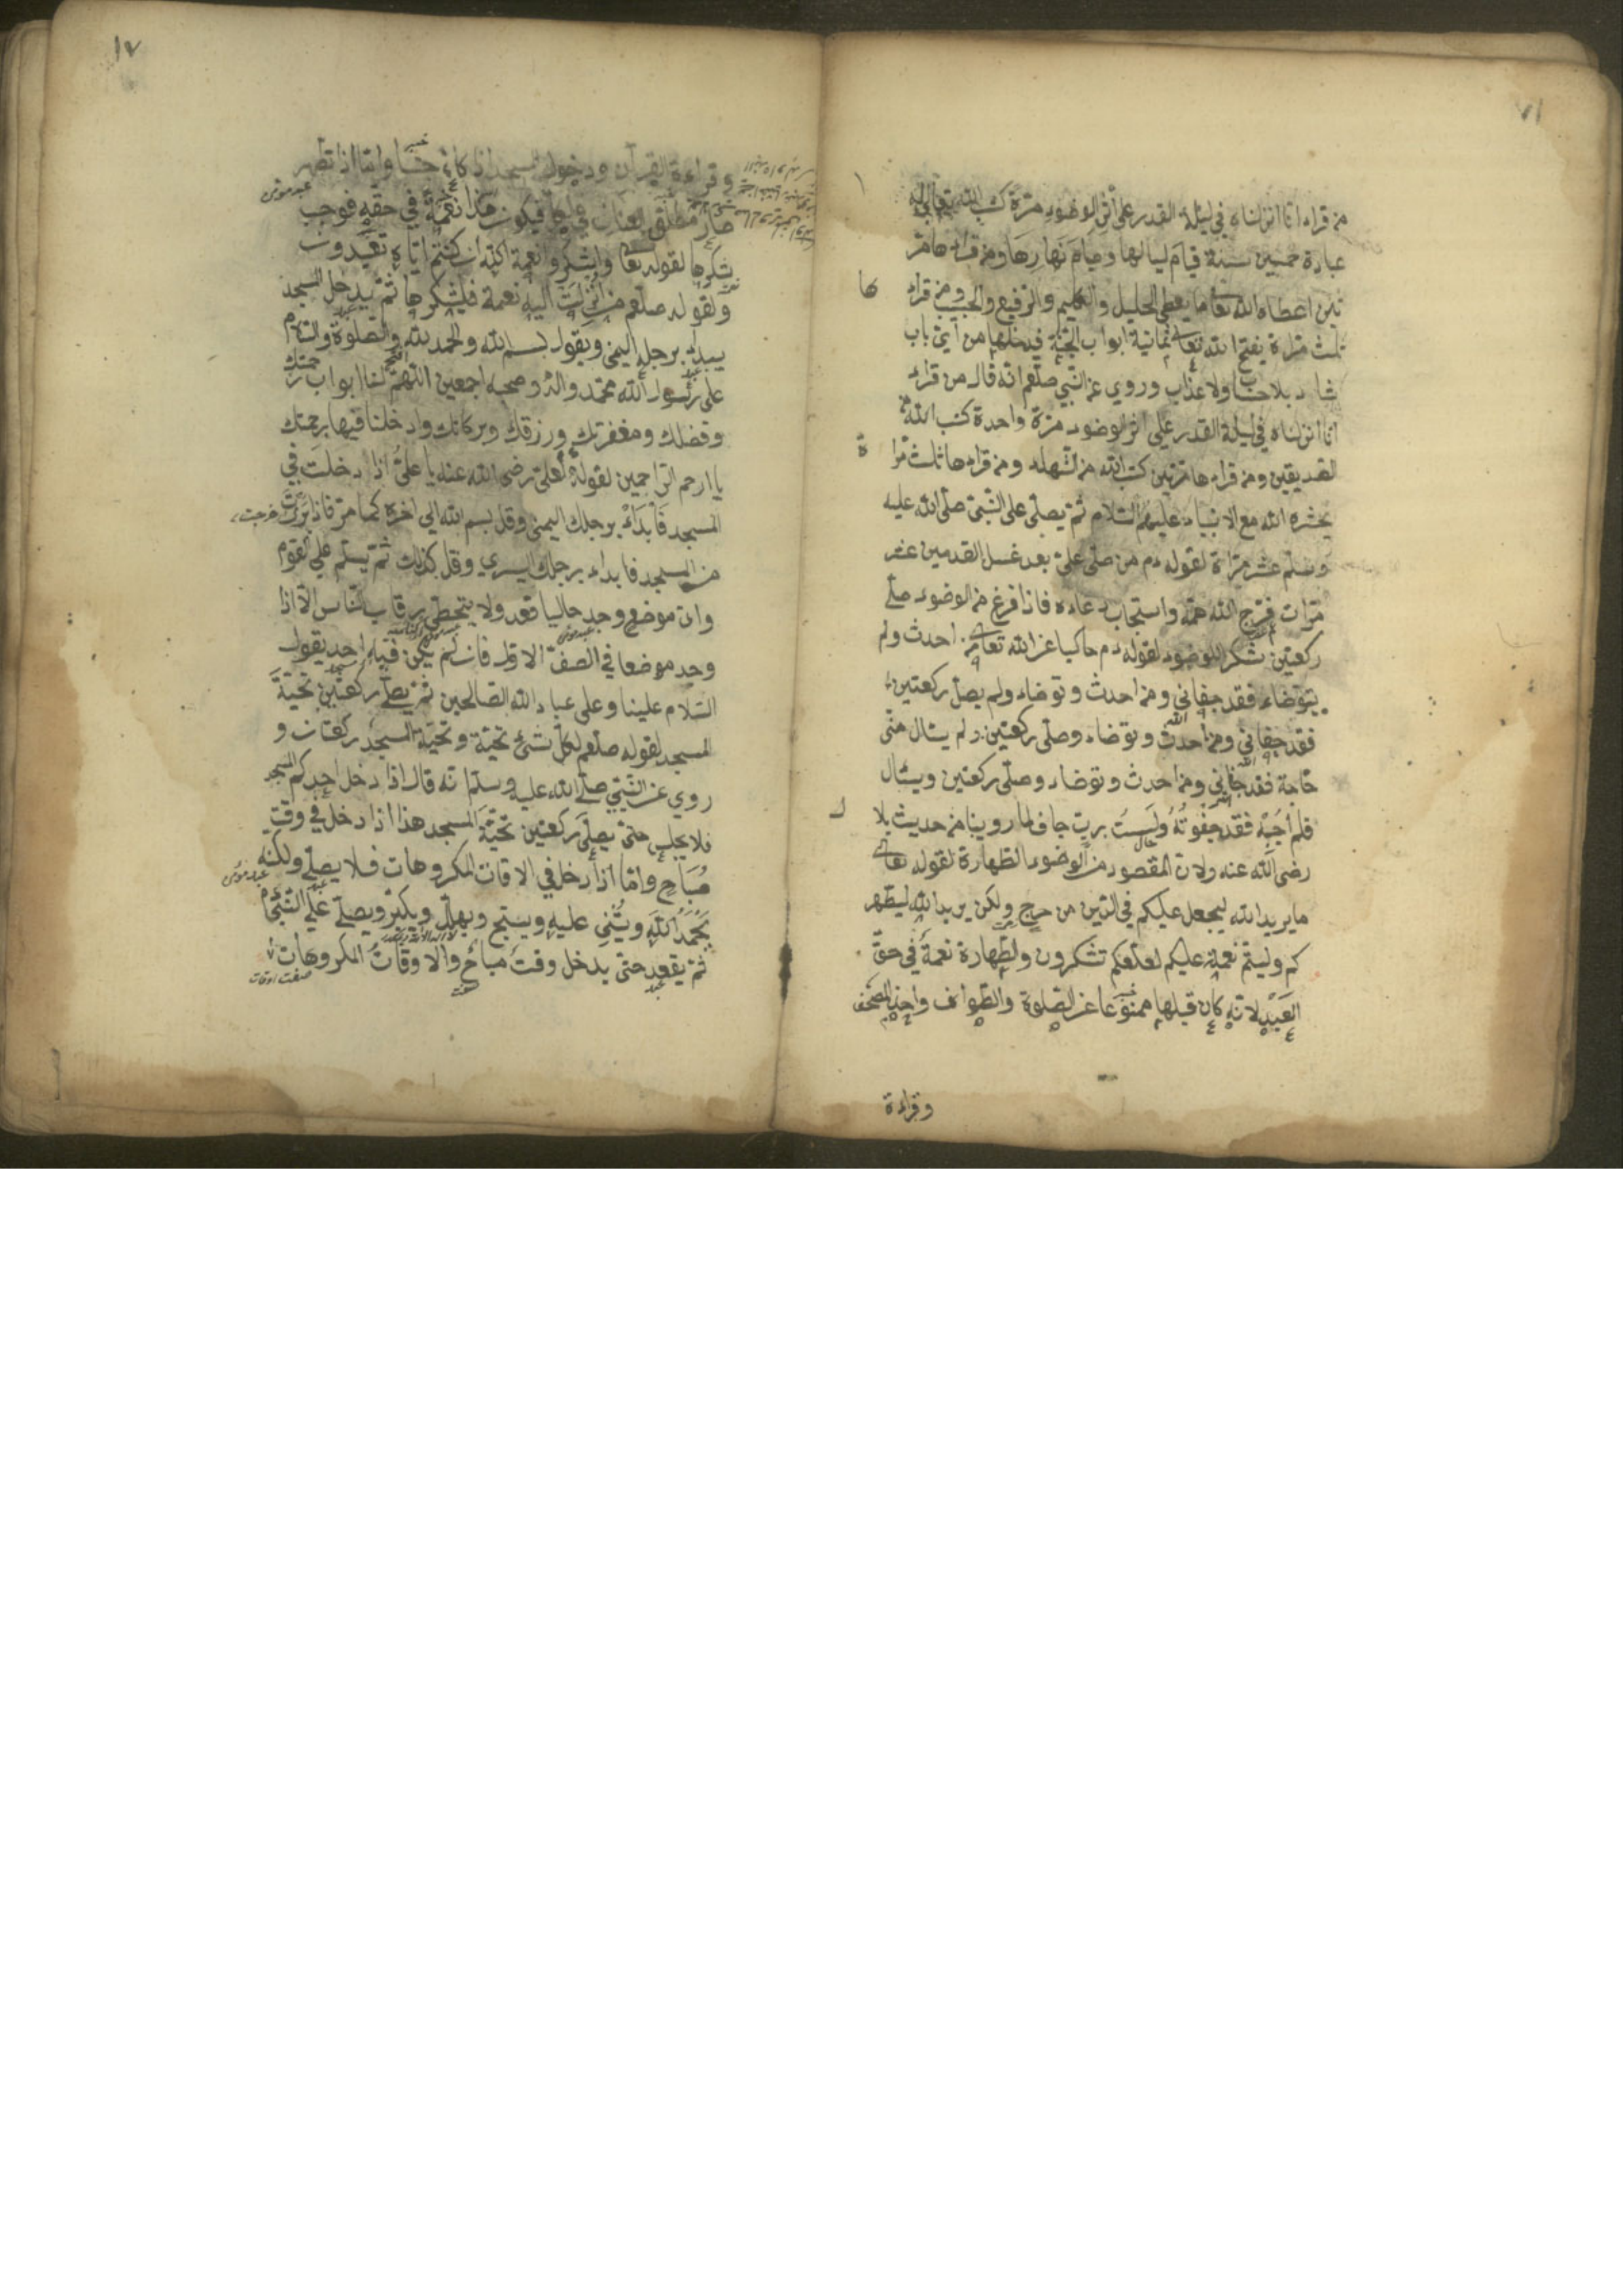 من قراء انا انزلناه في ليلة القدر على أثر الوضوء مرّة كتب الله تعالى له
عبادة خمسين سنة قيام لياليها وصيام نهارها ومن قراءها مر
تين اعطاه الله تعا ما يعطى الخليل والكليم والرفيع والحبيب ومن قراء ها
ثلث مراة يفتح الله تعالى ثمانية ابواب الجنة فيدخلها من أيّ باب
شاء بلا حساب ولا عذاب وروي عن النبي صلعم انه قال من قراء
انا انزلناه في ليلة القدر على اثر الوضوء مرّة واحدة كتب الله من
الصديقين ومن قراءها مرتين كتب الله من الشهداء ومن قراءها ثلث مرا ة
يحشره الله مع الانبياء عليهم السلام ثمّ يصلّى على النّبيّ صلّى الله عليه
وسلّم عشر مراة لقوله دم من صلّى عليّ بعد غسل القدمين عشر
مرّات فرّج الله همّه واستجاب دعاءه فاذا فرغ من الوضوء صلّے
ركعتين شكر للوضوء لقوله دم حاكيا عن الله تعالى من احدث ولم
يتوضاء فقد جفاني ومن احدث وتوضاء ولم يصلّ ركعتين
فقد جفاني ومن احدث وتوضاء وصلّى ركعتين ولم يسال منّي
حاجة فقد جفاني ومن احدث وتوضاء وصلّى ركعتين ويسال
فلم أجبه فقد جفوته ولست بربّ جاف لما روينا من حديث بلا ل
رضى الله عنه ولان المقصود من الوضوء الطهارة لقوله تعالے
ما يريد الله ليجعل عليكم في الدّين من حرج ولكن يريد الله ليطهر
كم وليتمّ نعمته عليكم لعلّكم تشكرون ولطّهارة نعمة في حقّ
العبد لانه كان قبلها ممنوعا عن الصلوة والطواف واخذ المصحف
وقراءة
١٧
وقراءة القرآن ودخول المسجد اذ كان جنبا وامّا اذا تطهر
صار مطلق العنان في عليها فيكون هذا نعمة في حقه فوجب
شكرها لقوله تعا واشكروا نعمة الله ان كنتم ايّاه تعبدون
ولقوله صلعم من انزلت اليه نعمة فليشكرها ثمّ يدخل المسجد
يبدا برجله اليمنى ويقول بسم الله والحمد لله والصلوة والسلام
على رسول الله محمّد واله وصحبه اجمعين اللهمّ افتح لنا ابواب رحمتك
وفضلك ومغفرتك ورزقك وبركاتك وادخلنا فيها برحمتك
يا ارحم الراحمين لقوله لعلى رضى الله عنه يا عليّ اذا دخلت في
المسجد فابداء برجلك اليمنى وقل بسم الله الي اخره كما مرّ فاذا برزت
من المسجد فابداء برجلك اليسري وقل كذلك ثمّ يسلّم علي القوم
واىّ موضع وجد خاليا قعد ولا يتخطى رقاب النّاس الّا اذا
وجد موضعا في الصفّ الاوّل فان لم يكن فيه احد يقول
السّلام علينا وعلى عباد الله الصالحين ثمّ يصلّے ركعتين تحيّة
المسجد لقوله صلعم لكلّ شئ تحيّة وتحيّة المسجد ركعتان و
روي عن النّبيّ صلّے الله عليه وسلم انّه قال اذا دخل احدكم المسجد
فلا يجلس حتّى يصلّي ركعتين تحيّة المسجد هذا اذا دخل في وقت
مباح وامّا اذا دخل في الاقات المكروهات فلا يصلّے ولكنّه
يحمد الله ويثني عليه ويسبّح ويهلّل ويكبّر ويصلّے علي النّبيّ
ثمّ يقعد حتّى يدخل وقت مباح والاوقات المكروهات